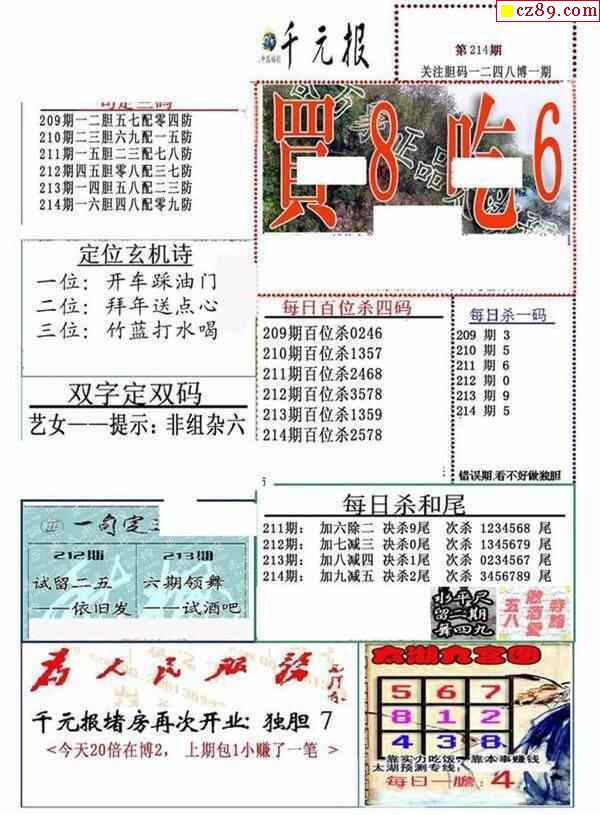 cz89.com
千元报
第214期
关注胆码一二四八博一期
209期一二胆五七配零四防
210期二三胆六九配一五防
211期一五胆二三配七八防
212期四五胆零八配三七防
213期一四胆五八配二三防
214期一六胆四八配零九防
買8吃6
定位玄机诗
一位：开车踩油门
二位：拜年送点心
三位：竹蓝打水喝
双字定双码
艺女——提示：非组杂六
每日百位杀四码
209期百位杀0246
210期百位杀1357
211期百位杀2468
212期百位杀3578
213期百位杀1359
214期百位杀2578
每日杀一码
209 期 3
210 期 5
211 期 6
212 期 0
213 期 9
214 期 5
错误期,看不好做独胆
一句定三
212期
试留二五
——依旧发
213期
六期领舞
——试酒吧
每日杀和尾
211期：加六除二 决杀9尾 次杀 1234568 尾
212期：加七减三 决杀0尾 次杀 1345679 尾
213期：加八减四 决杀1尾 次杀 0234567 尾
214期：加九减五 决杀2尾 次杀 3456789 尾
北平尺
留二期
舞四九
为人民服务
千元报堵房再次开业：独胆 7
<今天20倍在博2， 上期包1小赚了一笔 >
太湖九宫图
5 6 7
8 1 2
4 3 8
靠实力吃饭，靠本事赚钱
太湖预测专线：
每日一胆：4